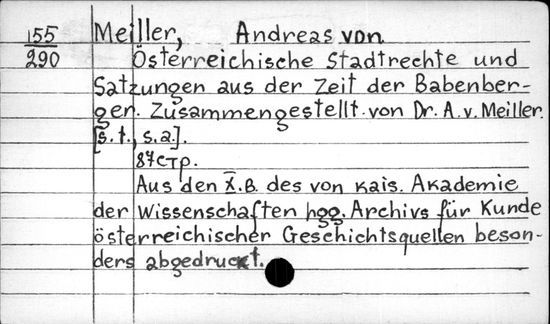 155 Meiller, Andreas von
290 Österreichische Stadtrechte und
Satzungen aus der Zeit der Babenber-
ger. Zusammengestellt von Dr. A. v. Meiller.
[s. t., s. a.].
87 стр.
Aus den X. B. des von Kais. Akademie
der Wissenschaften hgg. Archivs für Kunde
österreichischer Geschichtsquellen beson-
ders abgedruckt.